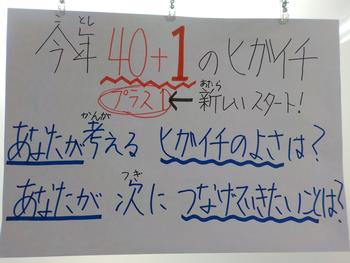 今年 40+1のヒガイチ
プラス1 ← 新しいスタート!
あなたが考える ヒガイチのよさは?
あなたが 次に つなげていきたいことは?